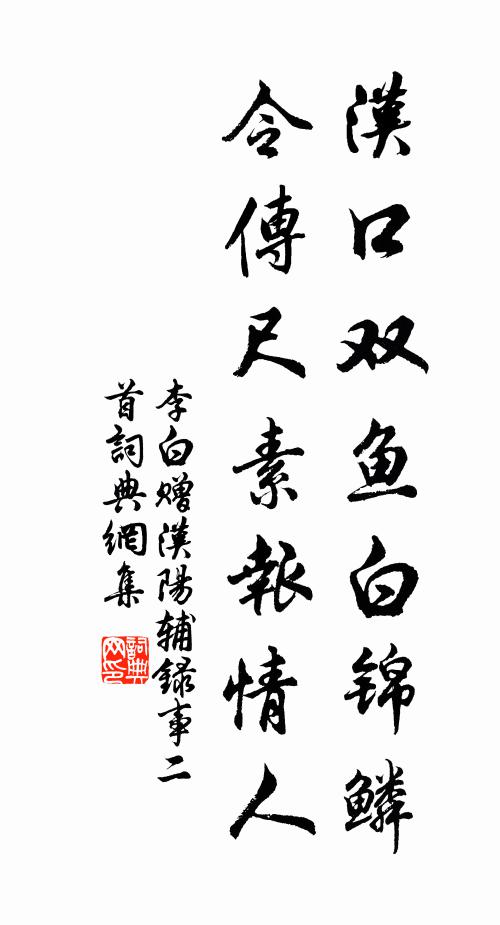 漢口双鱼白锦鳞
令傳尺素報情人
李白赠漢陽辅録事二
首詞典網集
詞典
网印